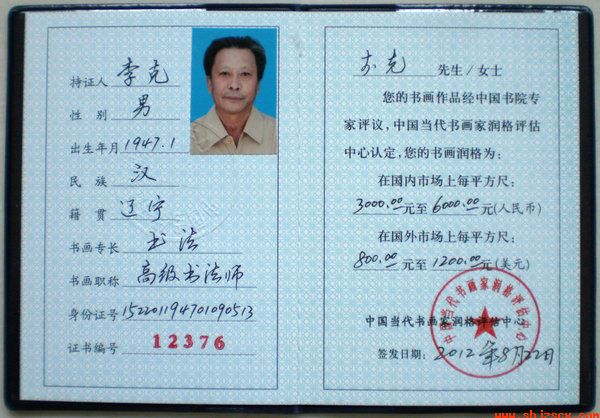 持证人 李克
性别 男
出生年月 1947.1
民族 汉
籍贯 辽宁
书画专长 书法
书画职称 高级书法师
身份证号 152201194701090513
证书编号 12376
李克 先生/女士
您的书画作品经中国书院专
家评议，中国当代书画家润格评估
中心认定，您的书画润格为：
在国内市场上每平方尺：
3000.00元至6000.00元(人民币)
在国外市场上每平方尺：
800.00元至1200.00元(美元)
中国当代书画家润格评估中心
中国当代书画家润格评估中心
签发日期：2012年8月22日
www.sbjzscw.com